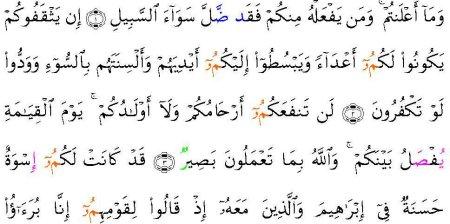 وَمَآ أَعْلَنتُمْ ۚ وَمَن يَفْعَلْهُ مِنكُمْ فَقَد ضَّلَّ سَوَآءَ ٱلسَّبِيلِ ۝١ إِن يَثْقَفُوكُمْ
يَكُونُوا۟ لَكُمُۥٓ أَعْدَآءً وَيَبْسُطُوٓا۟ إِلَيْكُمُۥٓ أَيْدِيَهُمْ وَأَلْسِنَتَهُم بِٱلسُّوٓءِ وَوَدُّوا۟
لَوْ تَكْفُرُونَ ۝٢ لَن تَنفَعَكُمُۥٓ أَرْحَامُكُمْ وَلَآ أَوْلَـٰدُكُمْ ۚ يَوْمَ ٱلْقِيَـٰمَةِ
يُفْصَلُ بَيْنَكُمْ ۚ وَٱللَّهُ بِمَا تَعْمَلُونَ بَصِيرٌ ۝٣ قَدْ كَانَتْ لَكُمُۥٓ إِسْوَةٌ
حَسَنَةٌ فِىٓ إِبْرَٰهِيمَ وَٱلَّذِينَ مَعَهُۥٓ إِذْ قَالُوا۟ لِقَوْمِهِمُۥٓ إِنَّا بُرَءَٰٓؤُا۟